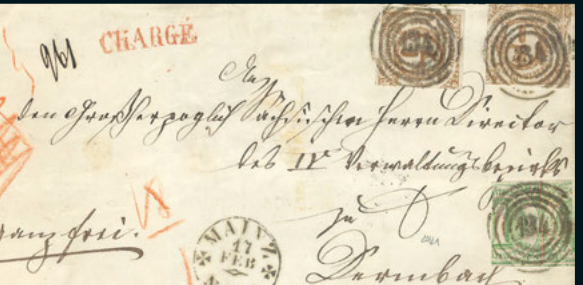 961
CHARGÉ
An
den Großherzoglich Sächsischen Herrn Director
des IV Verwaltungsbezirks
zu
Dermbach
ganz frei.
MAINZ
17
FEB
134